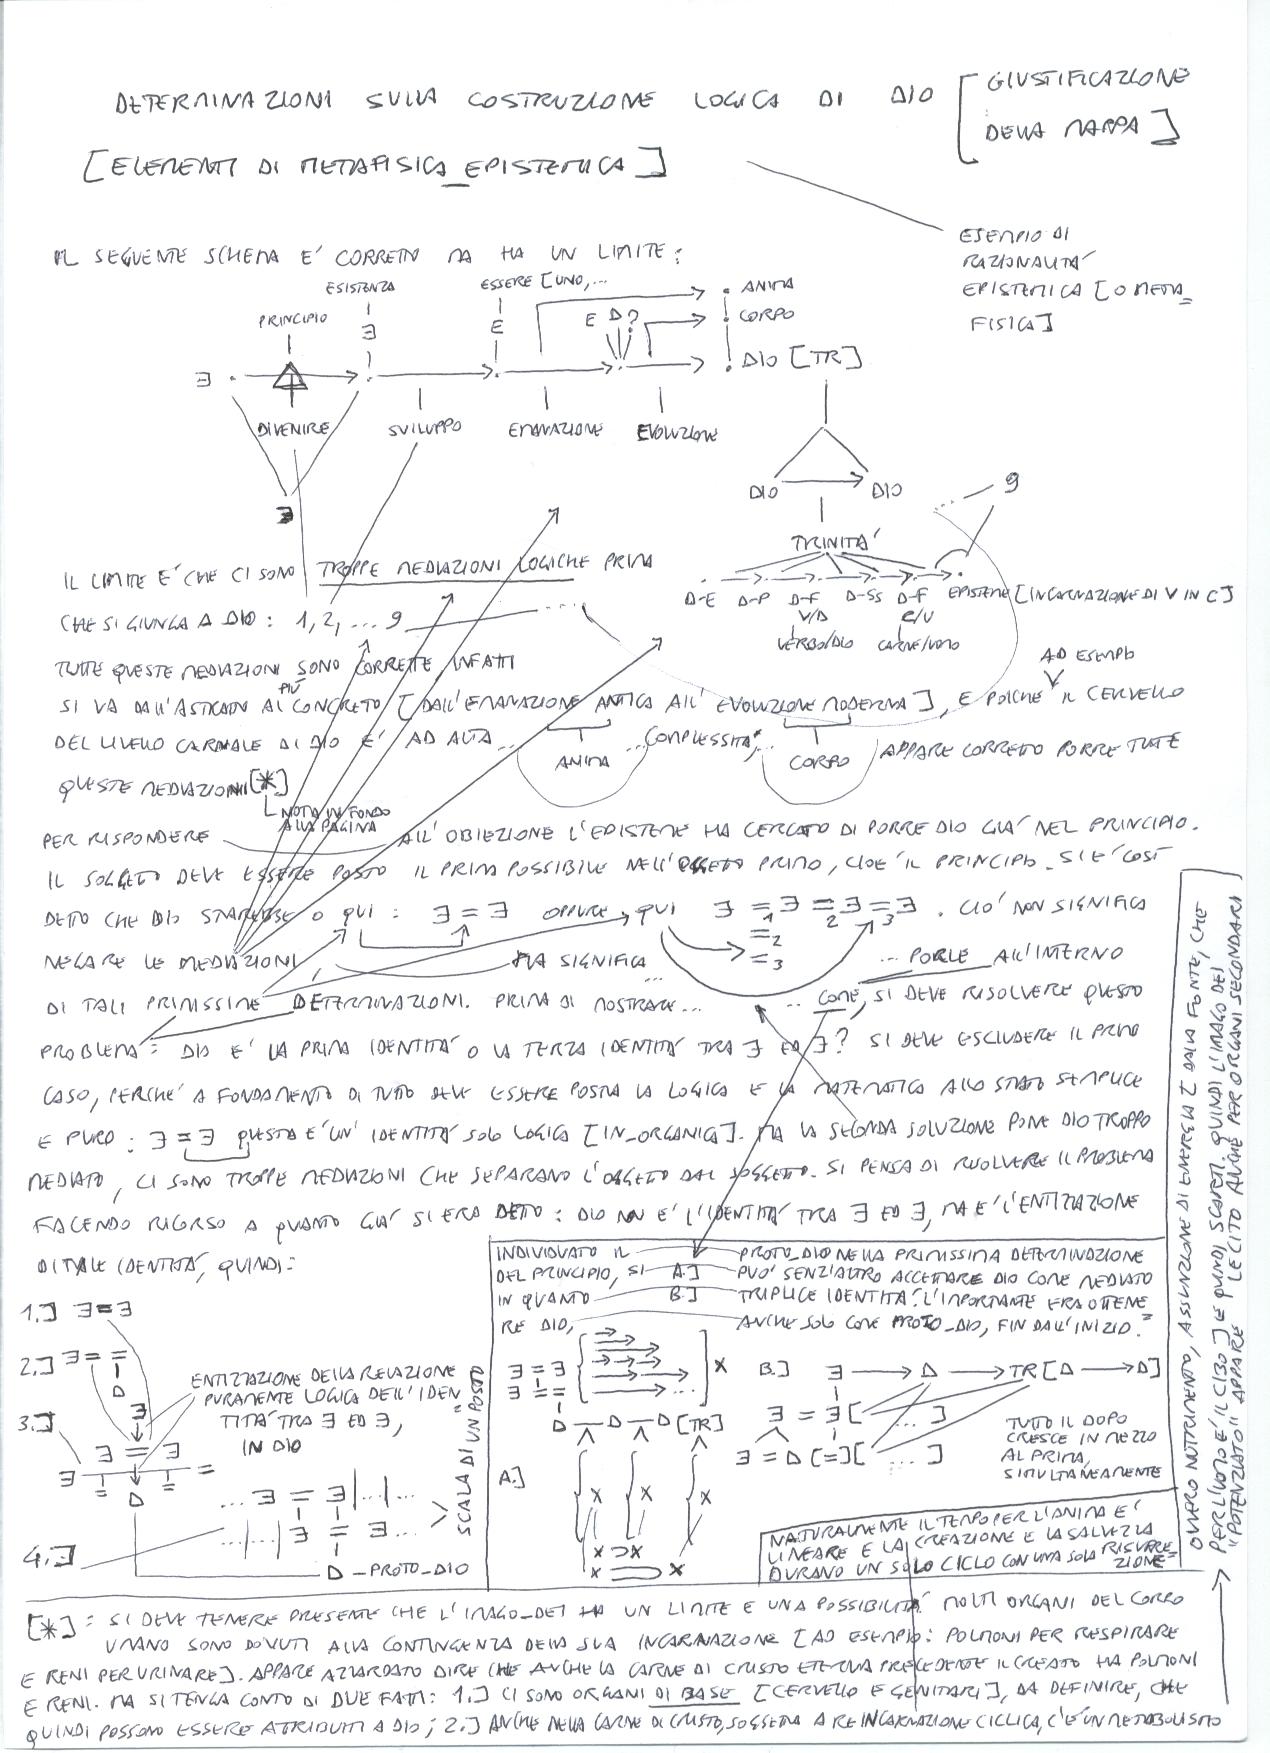 DETERMINAZIONI SULLA COSTRUZIONE LOGICA DI DIO [GIUSTIFICAZIONE
DELLA MAPPA]
[ELEMENTI DI METAFISICA_EPISTEMICA]
ESEMPIO DI
RAZIONALITA'
EPISTEMICA [O META=
FISICA]
IL SEGUENTE SCHEMA E' CORRETTO MA HA UN LIMITE:
ESISTENZA
ESSERE [UNO,...
ANIMA
PRINCIPIO
∃
E
E D?
CORPO
∃
DIO [TR]
DIVENIRE
SVILUPPO
EMANAZIONE
EVOLUZIONE
∃
DIO DIO
... 9
TRINITA'
D-E D-P D-F D-SS D-F EPISTEME [INCARNAZIONE DI V IN C]
V/D C/U
VERBO/DIO CARNE/UOMO
IL LIMITE E' CHE CI SONO TROPPE MEDIAZIONI LOGICHE PRIMA
CHE SI GIUNGA A DIO: 1, 2, ... 9 ...
TUTTE QUESTE MEDIAZIONI SONO CORRETTE INFATTI
SI VA DALL'ASTRATTO AL PIÙ CONCRETO [DALL'EMANAZIONE ANTICA ALL'EVOLUZIONE MODERNA], E POICHE' AD ESEMPIO IL CERVELLO
DEL LIVELLO CARNALE DI DIO E' AD ALTA ... ... COMPLESSITA', APPARE CORRETTO PORRE TUTTE
ANIMA
CORPO
QUESTE MEDIAZIONI [*]
NOTA IN FONDO
ALLA PAGINA
PER RISPONDERE ALL'OBIEZIONE L'EPISTEME HA CERCATO DI PORRE DIO GIA' NEL PRINCIPIO.
IL SOGGETTO DEVE ESSERE POSTO IL PRIMA POSSIBILE NELL'OGGETTO PRIMO, CIOE' IL PRINCIPIO. SI E' COSI'
DETTO CHE DIO STAREBBE O QUI: ∃ = ∃ OPPURE QUI ∃ = ∃ = ∃ = ∃. CIO' NON SIGNIFICA
1 2 3
=2
=3
NEGARE LE MEDIAZIONI, MA SIGNIFICA ... ... PORLE ALL'INTERNO
DI TALI PRIMISSIME DETERMINAZIONI. PRIMA DI MOSTRARE... ... COME, SI DEVE RISOLVERE QUESTO
PROBLEMA: DIO E' LA PRIMA IDENTITA' O LA TERZA IDENTITA' TRA ∃ ED ∃? SI DEVE ESCLUDERE IL PRIMO
CASO, PERCHE' A FONDAMENTO DI TUTTO DEVE ESSERE POSTA LA LOGICA E LA MATEMATICA ALLO STATO SEMPLICE
E PURO: ∃ = ∃ QUESTA E' UN'IDENTITA' SOLO LOGICA [IN_ORGANICA]. MA LA SECONDA SOLUZIONE PONE DIO TROPPO
MEDIATO, CI SONO TROPPE MEDIAZIONI CHE SEPARANO L'OGGETTO DAL SOGGETTO. SI PENSA DI RISOLVERE IL PROBLEMA
FACENDO RICORSO A QUANTO GIA' SI ERA DETTO: DIO NON E' L'IDENTITA' TRA ∃ ED ∃, MA E' L'ENTIZZAZIONE
DI TALE IDENTITA', QUINDI:
1.] ∃ = ∃
2.] ∃ = =
D
3.]
∃
∃ = ∃
∃ = = =
D
ENTIZZAZIONE DELLA RELAZIONE
PURAMENTE LOGICA DELL'IDEN=
TITA' TRA ∃ ED ∃,
IN DIO
4.]
... ∃ = ∃ |...|...
...|...| ∃ = ∃...
D_PROTO_DIO
SCALA DI UN POSTO
INDIVIDUATO IL PROTO_DIO NELLA PRIMISSIMA DETERMINAZIONE
DEL PRINCIPIO, SI A.] PUO' SENZ'ALTRO ACCETTARE DIO COME MEDIATO
IN QUANTO B.] TRIPLICE IDENTITA'. L'IMPORTANTE ERA OTTENE=
RE DIO, ANCHE SOLO COME PROTO_DIO, FIN DALL'INIZIO.
∃ = ∃
∃ = =
X
D — D — D [TR]
A.]
X X X
X ⊃ X
X ⊃ X
B.] ∃ → D → TR [D → D]
∃ = ∃ [ ... ]
∃ = D [=] [ ... ]
TUTTO IL DOPO
CRESCE IN MEZZO
AL PRIMA,
SIMULTANEAMENTE
NATURALMENTE IL TEMPO PER L'ANIMA E'
LINEARE E LA CREAZIONE E LA SALVEZZA
DURANO UN SOLO CICLO CON UNA SOLA RISURRE=
ZIONE
[*]: SI DEVE TENERE PRESENTE CHE L'IMAGO_DEI HA UN LIMITE E UNA POSSIBILITA' MOLTI ORGANI DEL CORPO
UMANO SONO DOVUTI ALLA CONTINGENZA DELLA SUA INCARNAZIONE [AD ESEMPIO: POLMONI PER RESPIRARE
E RENI PER URINARE]. APPARE AZZARDATO DIRE CHE ANCHE LA CARNE DI CRISTO ETERNA PRECEDENTE IL CREATO HA POLMONI
E RENI. MA SI TENGA CONTO DI DUE FATTI: 1.] CI SONO ORGANI DI BASE [CERVELLO E GENITALI], DA DEFINIRE, CHE
QUINDI POSSONO ESSERE ATTRIBUITI A DIO; 2.] ANCHE NELLA CARNE DI CRISTO, SOGGETTA A REINCARNAZIONE CICLICA, C'E' UN METABOLISMO
OVVERO NUTRIMENTO, ASSUNZIONE DI ENERGIA [DALLA FONTE, CHE
PER L'UOMO E' IL CIBO] E QUINDI SCOPERTI. QUINDI L'IMAGO DEI
"POTENZIATO" APPARE LECITO ANCHE PER ORGANI SECONDARI